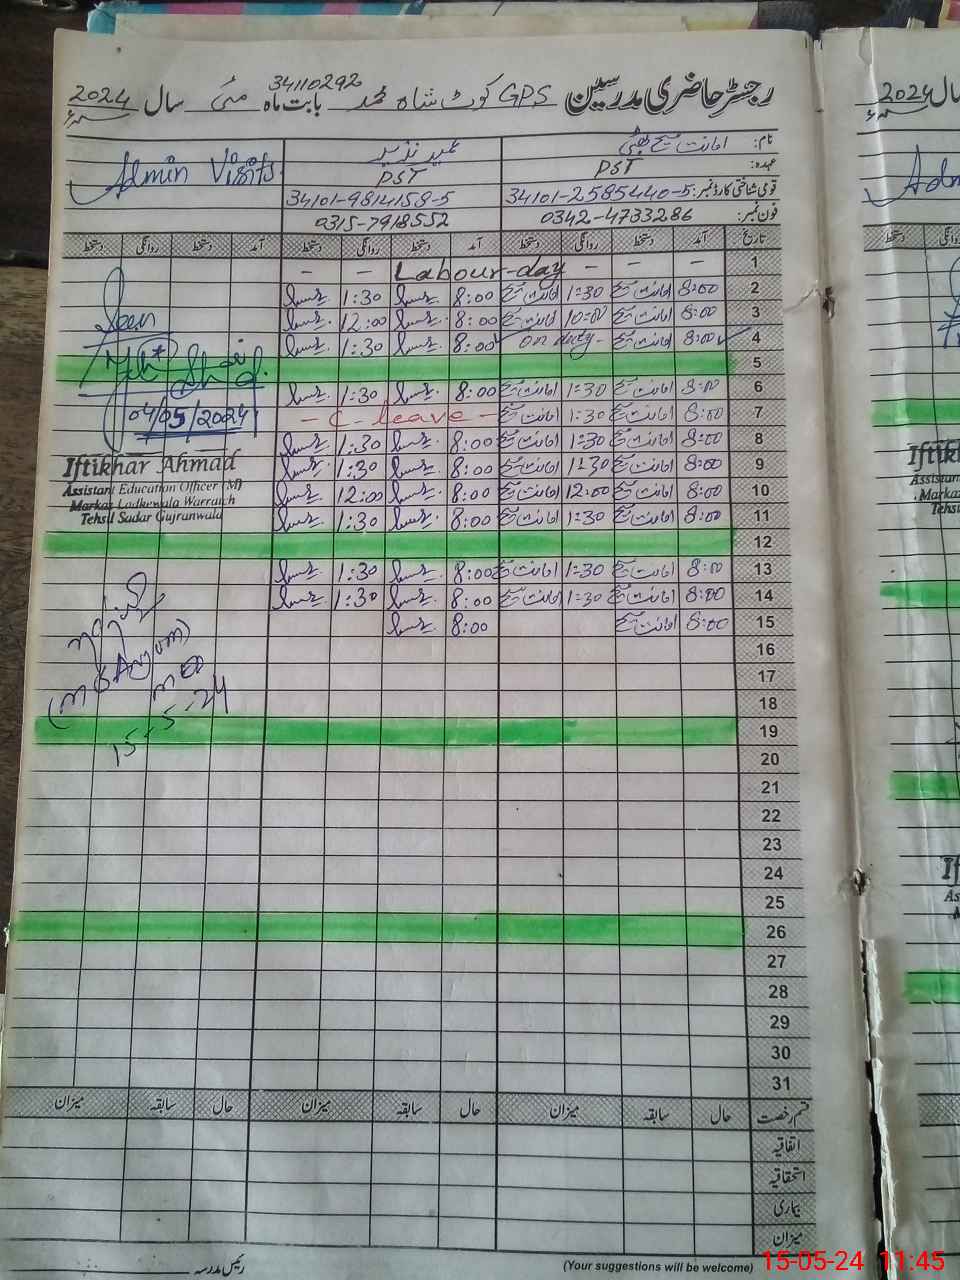 رجسٹر حاضری مدرسین GPS کوٹ شاہ محمد بابت ماہ مئی سال 2024
34110292
نام: امانت مسیح بھٹی
عہدہ: PST PST Admin Visits
قومی شناختی کارڈ نمبر: 34101-2585440-5 34101-9814158-5
فون نمبر: 0342-4733286 0315-7918552
تاریخ آمد دستخط روانگی دستخط آمد دستخط روانگی دستخط آمد دستخط روانگی دستخط
1 – – Labour-day – – –
2 8:00 امانت مسیح 1:30 امانت مسیح 8:00 1:30
3 8:00 امانت مسیح 10:00 امانت مسیح 8:00 12:00
4 8:00 امانت مسیح on duty- 8:00 1:30
5
6 8:00 امانت مسیح 1:30 امانت مسیح 8:00 1:30
7 8:00 امانت مسیح 1:30 امانت مسیح – C-leave –
8 8:00 امانت مسیح 1:30 امانت مسیح 8:00 1:30
9 8:00 امانت مسیح 1:30 امانت مسیح 8:00 1:30
10 8:00 امانت مسیح 12:00 امانت مسیح 8:00 12:00
11 8:00 امانت مسیح 1:30 امانت مسیح 8:00 1:30
12
13 8:00 امانت مسیح 1:30 امانت مسیح 8:00 1:30
14 8:00 امانت مسیح 1:30 امانت مسیح 8:00 1:30
15 8:00 امانت مسیح 8:00
16
17
18
19
20
21
22
23
24
25
26
27
28
29
30
31
Seen
04/05/2024
Iftikhar Ahmad
Assistant Education Officer (M)
Markaz Ladhewala Warraich
Tehsil Sadar Gujranwala
(M S Anjum)
15-5-24
قسم رخصت حال سابقہ میزان حال سابقہ میزان حال سابقہ میزان
اتفاقیہ
استحقاقیہ
بیماری
میزان
رئیس مدرسہ
(Your suggestions will be welcome)
15-05-24 11:45
2024 سال
Adm
Iftik
Assis
Mark
Tehs
If
As
M